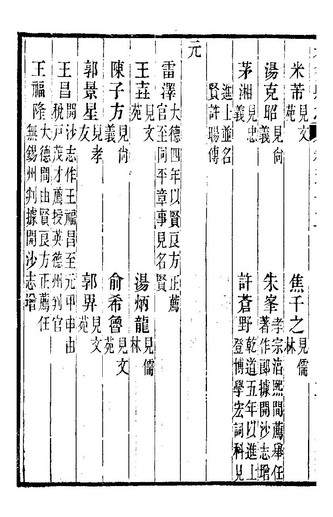 米芾見文苑　焦千之見儒林
湯克昭見尙義　朱峯孝宗淳熙間薦舉任著作郎據開沙志增
茅湘見忠義　許蒼野乾道五年以進士登博學宏詞科見
進士並名賢許瑒傳
元
雷澤大德四年以賢良方正薦官至同平章事見名賢
王垚見文苑　湯炳龍見儒林
陳子方見尙義　俞希魯見文苑
郭景星見孝友　郭畀見文苑
王昌開沙志作王福昌至元甲申由稅戸茂才薦授英德州判官
王福隆大德間由賢良方正薦任無錫州判據開沙志增